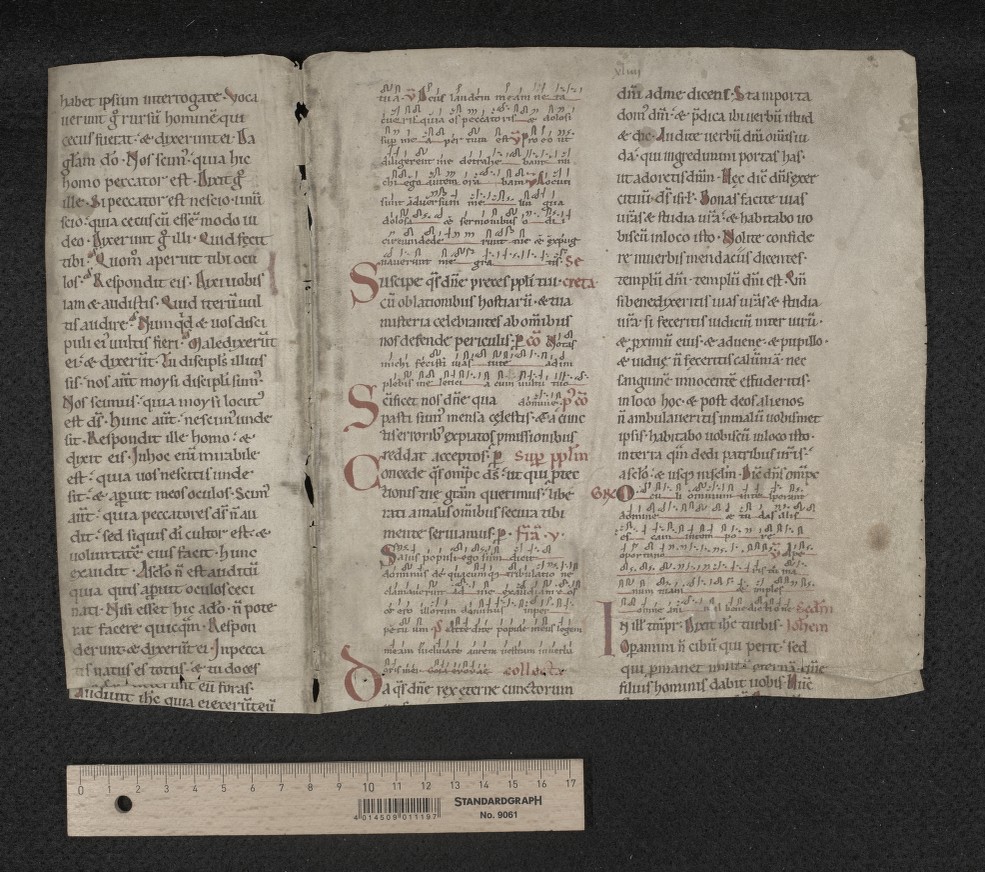 habet ipsum interrogate. Voca
uerunt g̊ rursū hominē qui
cecus fuerat. & dixerunt ei. Da
glam dō. Nos scim᷒ quia hic
homo peccator est. Dixit g̊
ille. Si peccator est nescio. unū
scio. quia cecus cū essē modo ui
deo. Dixerunt g̊ illi. Quid fecit
tibi. Quom̊ aperuit tibi ocu
los. Respondit eis. Dixi uobis
iam & audistis. Quid iterū uul
tis audire. Nunqd & uos disci
puli ei᷒ uultis fieri. Maledixerūt
ei. & dixerūt. Tu discipls illius
sis. nos aūt moysi discipli sum᷒
Nos scimus. quia moysi locut᷒
est ds̄. Hunc aūt. nescim᷒ unde
sit. Respondit ille homo. &
dixit eis. In hoc eni mirabile
est. quia uos nescitis unde
sit. & aperuit meos oculos. Scim᷒
aūt. quia peccatores ds̄ n̄ au
dit. sed siquis dī cultor est. &
uoluntatē eius facit. hunc
exaudit. A sclo n̄ est auditū
quia quis apuit oculos ceci
nati. Nisi esset hic a dō. n̄ pote
rat facere quicqm̄. Respon
derunt. & dixerūt ei. In pecca
tis natus es totus. & tu doces
eū foras.
Audiuit ihc quia eiecerūt eū
tua. V Deus laudem meam ne ta
cueris quia os peccatoris & dolosi
sup me aper tum est V Pro eo ut
diligerent me detrahe bant mi
chi ego autem ora bam V Locuti
sunt aduersum me lin gua
dolosa & sermonibus o dii
circumdede runt me & expug
nauerunt me gra tis. Se
Suscipe qs dn̄e preces ppli tui. creta.
cū oblationibus hostiarū. & tua
misteria celebrantes ab omībus
nos defende periculis. P. Co Notas
michi fecisti uias uite adim
plebis me leticia cum uultu tuo
Scificet nos dn̄e qua domine. P. co
pasti sum᷒ mensa celestis. & a cunc
tis errorib᷒ expiatos pmissionibus
reddat acceptos. P. Sup pplm
Concede qs omps ds̄. ut qui ptec
tionis tue grām querimus. libe
rati a malis omībus secura tibi
mente seruiamus. P. Fr̄ia v.
Salus populi ego sum dicit
dominus de quacumq; tribulatio ne
clamauerint ad me exaudiam e os
& ero illorum dominus in per
petu um. P Attendite popule meus legem
meam inclinate aurem uestram in uerba
oris mei. collecta
Da qs dn̄e rex eterne cunctorum
xliiii
dn̄i ad me dicens. Sta in porta
dom᷒ dn̄i. & pdica ibi uerbū istud
& dic. Audite uerbū dn̄i omīs iu
da. qui ingredimini portas has.
ut adoretis dn̄m. Hec dic̄ dn̄s exer
cituū. ds̄ isrl. Bonas facite uias
uras & studia ura. & habitabo uo
biscū in loco isto. Nolite confide
re in uerbis mendacii dicentes.
templū dn̄i. templū dn̄i est. Qm̄
si benedixeritis uias uras & studia
ura. si feceritis iudiciū inter uirū.
& proximū eius. & aduene. & pupillo.
& uidue n̄ feceritis calūniā. nec
sanguinē innocentē effuderitis.
in loco hoc. & post deos alienos
n̄ ambulaueritis in malū uobismet
ipsis. habitabo uobiscū in loco isto.
in terra qm̄ dedi patribus uris.
a sclo. & usq; in sclm. Dic̄ dn̄s omps
Gr Oculi omnium in te sperant
domine & tu das illis
es cam in tem po re
oportuno V Aperi
tis tu ma
num tuam & imples
omne ani m al benedictione Sedm
In ill tmpr. Dixit ihc turbis. Iohem
Opamini n̄ cibū qui perit. sed
qui pmanet in uitā eternā. quē
filius hominis dabit uobis. Hūc
0 1 2 3 4 5 6 7 8 9 10 11 12 13 14 15 16 17
4 014509 011197
STANDARDGRAPH
No. 9061